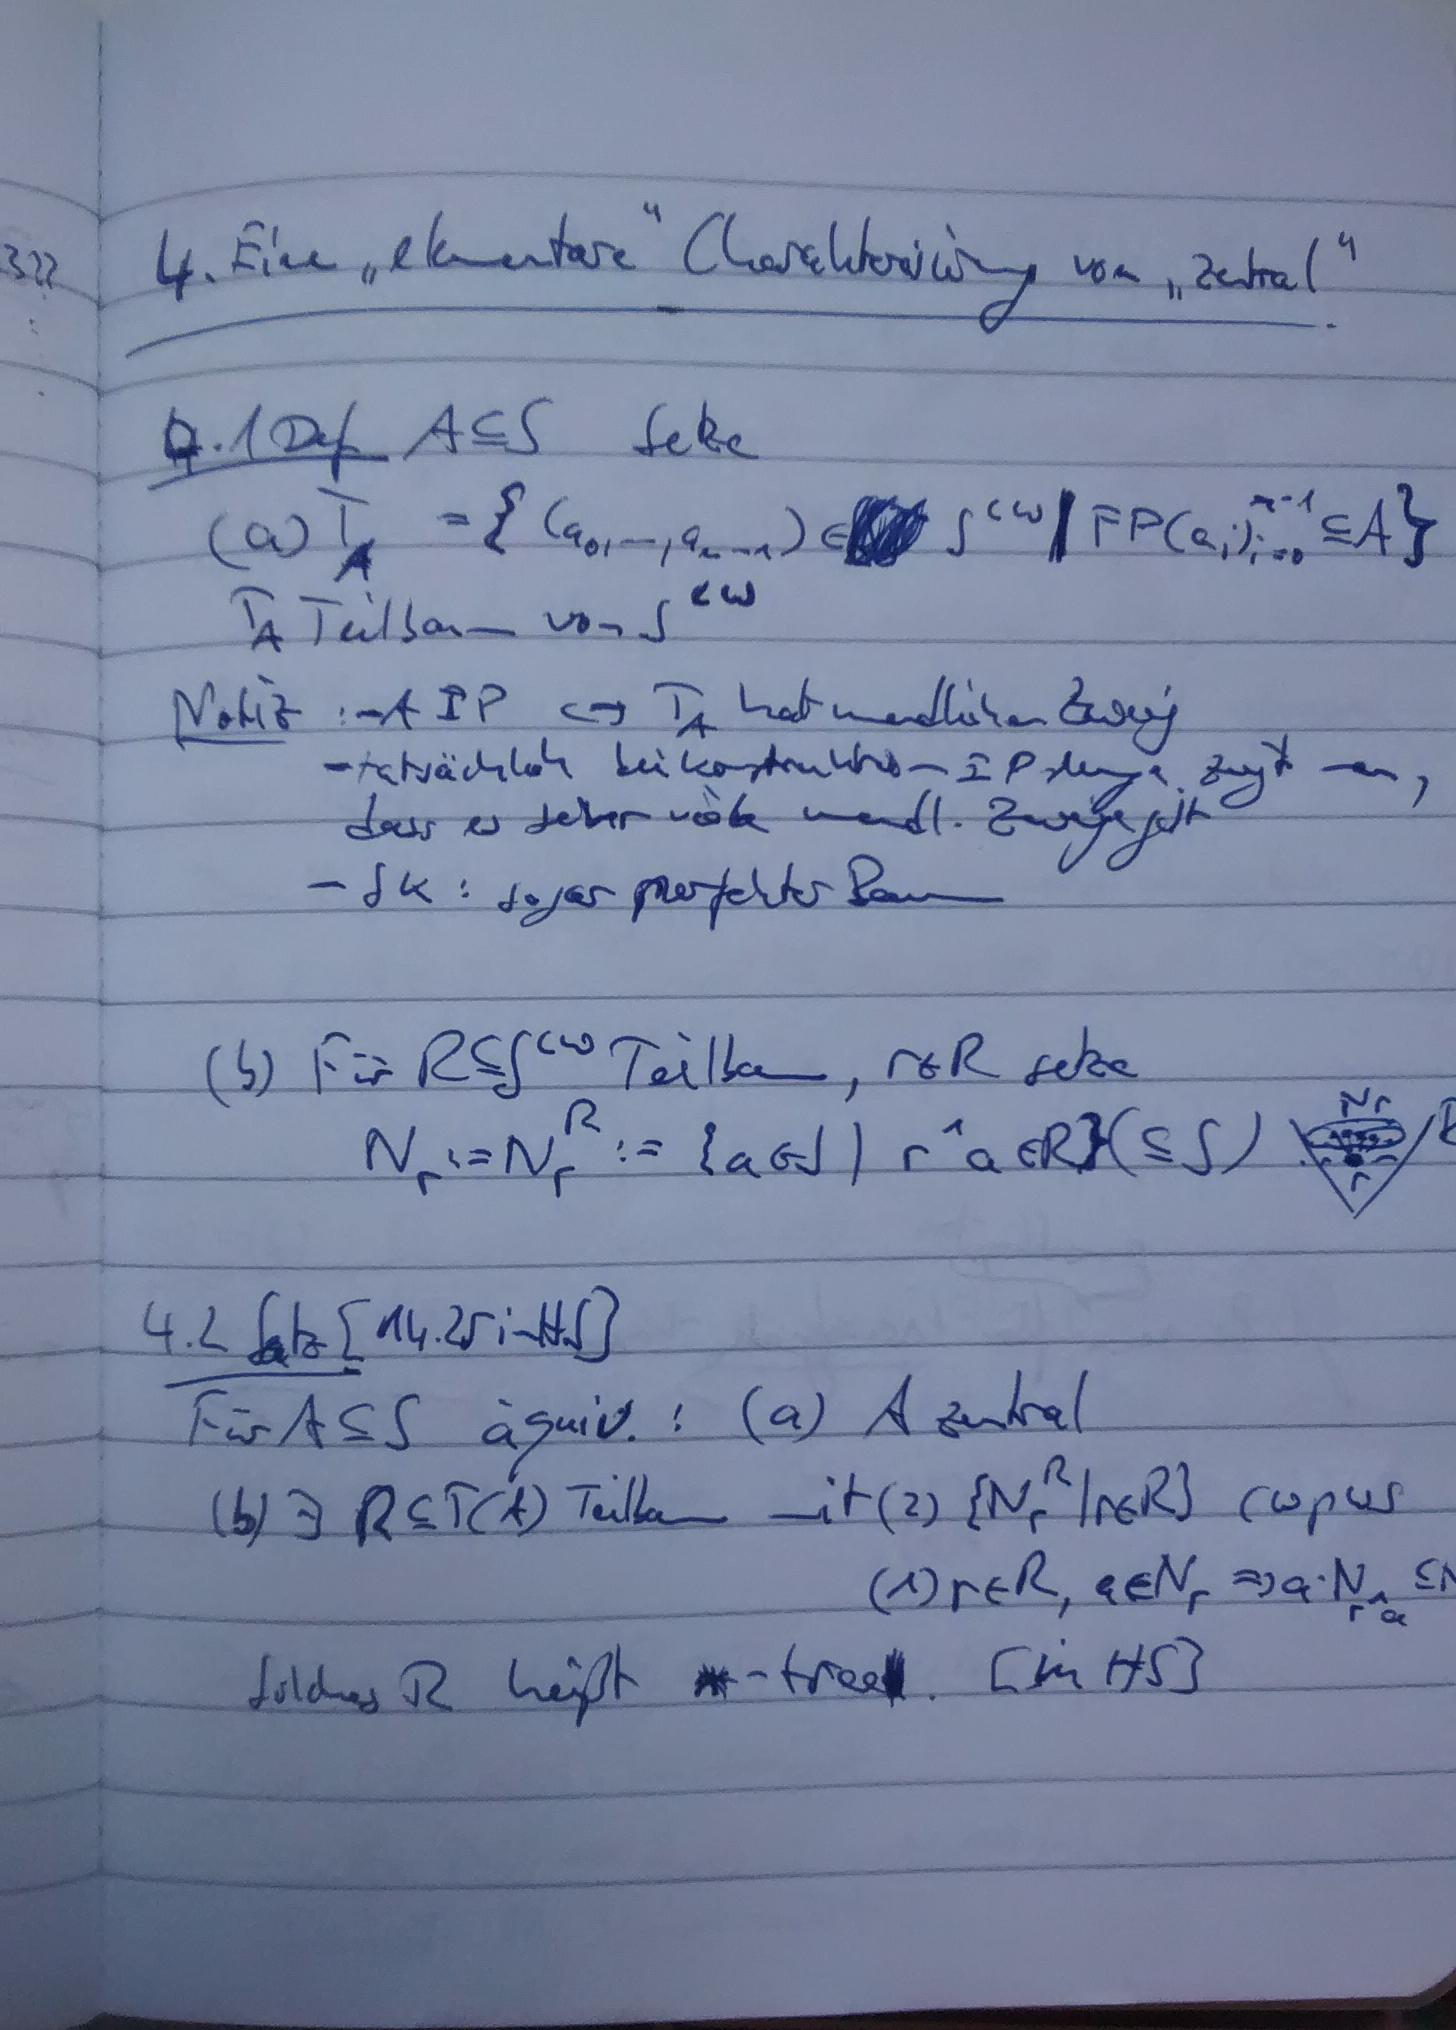 322
4. Eine „elementare“ Charakterisierung von „zentral“
4.1 Def A⊆S setze
(a) T_A = {(a_0,…,a_{n-1}) ∈ S^{<ω} | FP(a_i)_{i=0}^{n-1} ⊆ A}
T_A Teilbaum von S^{<ω}
Notiz :- A IP ↔ T_A hat unendlichen Zweig
- tatsächlich bei Konstruktion IP Menge zeigt man,
dass es sehr viele unendl. Zweige gibt
- SK : sogar perfekter Baum
(b) Für R⊆S^{<ω} Teilbaum, r∈R setze
N_r := N_r^R := {a∈S | r^a ∈R} (⊆ S)
N_r
r
R
4.2 Satz [14.25 im HS]
Für A⊆S äquiv. : (a) A zentral
(b) ∃ R⊆T(A) Teilbaum mit (2) {N_r^R | r∈R} cwpws
(1) r∈R, a∈N_r ⇒ a·N_{r^a} ⊆ N
Solches R heißt *-tree. [in HS]